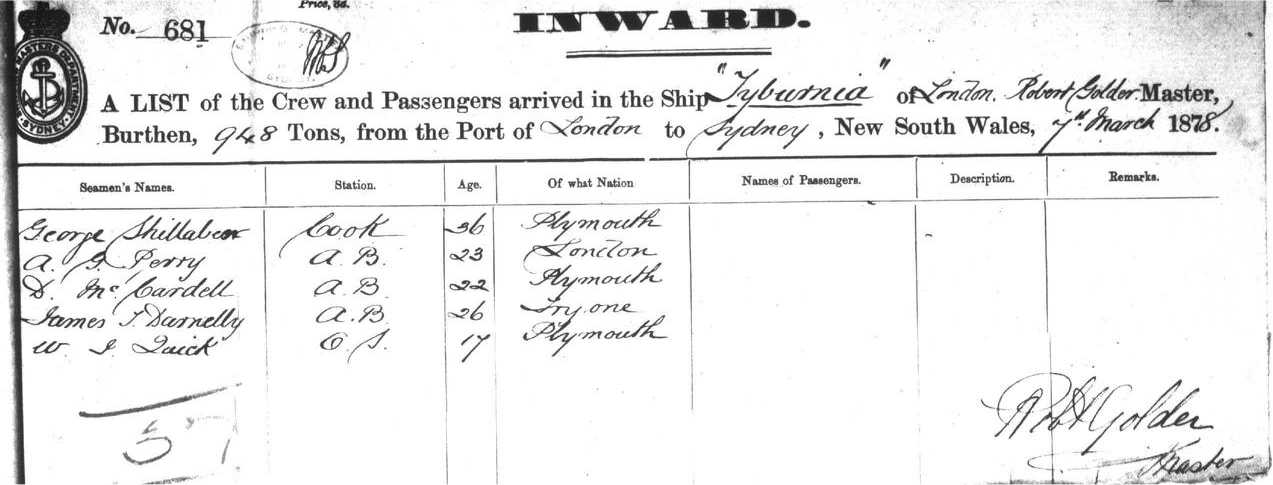 Price, 3d.
No. 681
INWARD.
MASTERS DEPARTMENT SYDNEY
A LIST of the Crew and Passengers arrived in the Ship "Tyburnia" of London. Robert Golder Master,
Burthen, 948 Tons, from the Port of London to Sydney, New South Wales, 7th March 1878.
Seamen's Names. Station. Age. Of what Nation Names of Passengers. Description. Remarks.
George Shillabeer Cook 36 Plymouth
A. G. Perry A. B. 23 London
D. McCardell A. B. 22 Plymouth
James T. Darnelly A. B. 26 Tryone
W. J. Quick O. S. 17 Plymouth
57
Robt Golder
Master